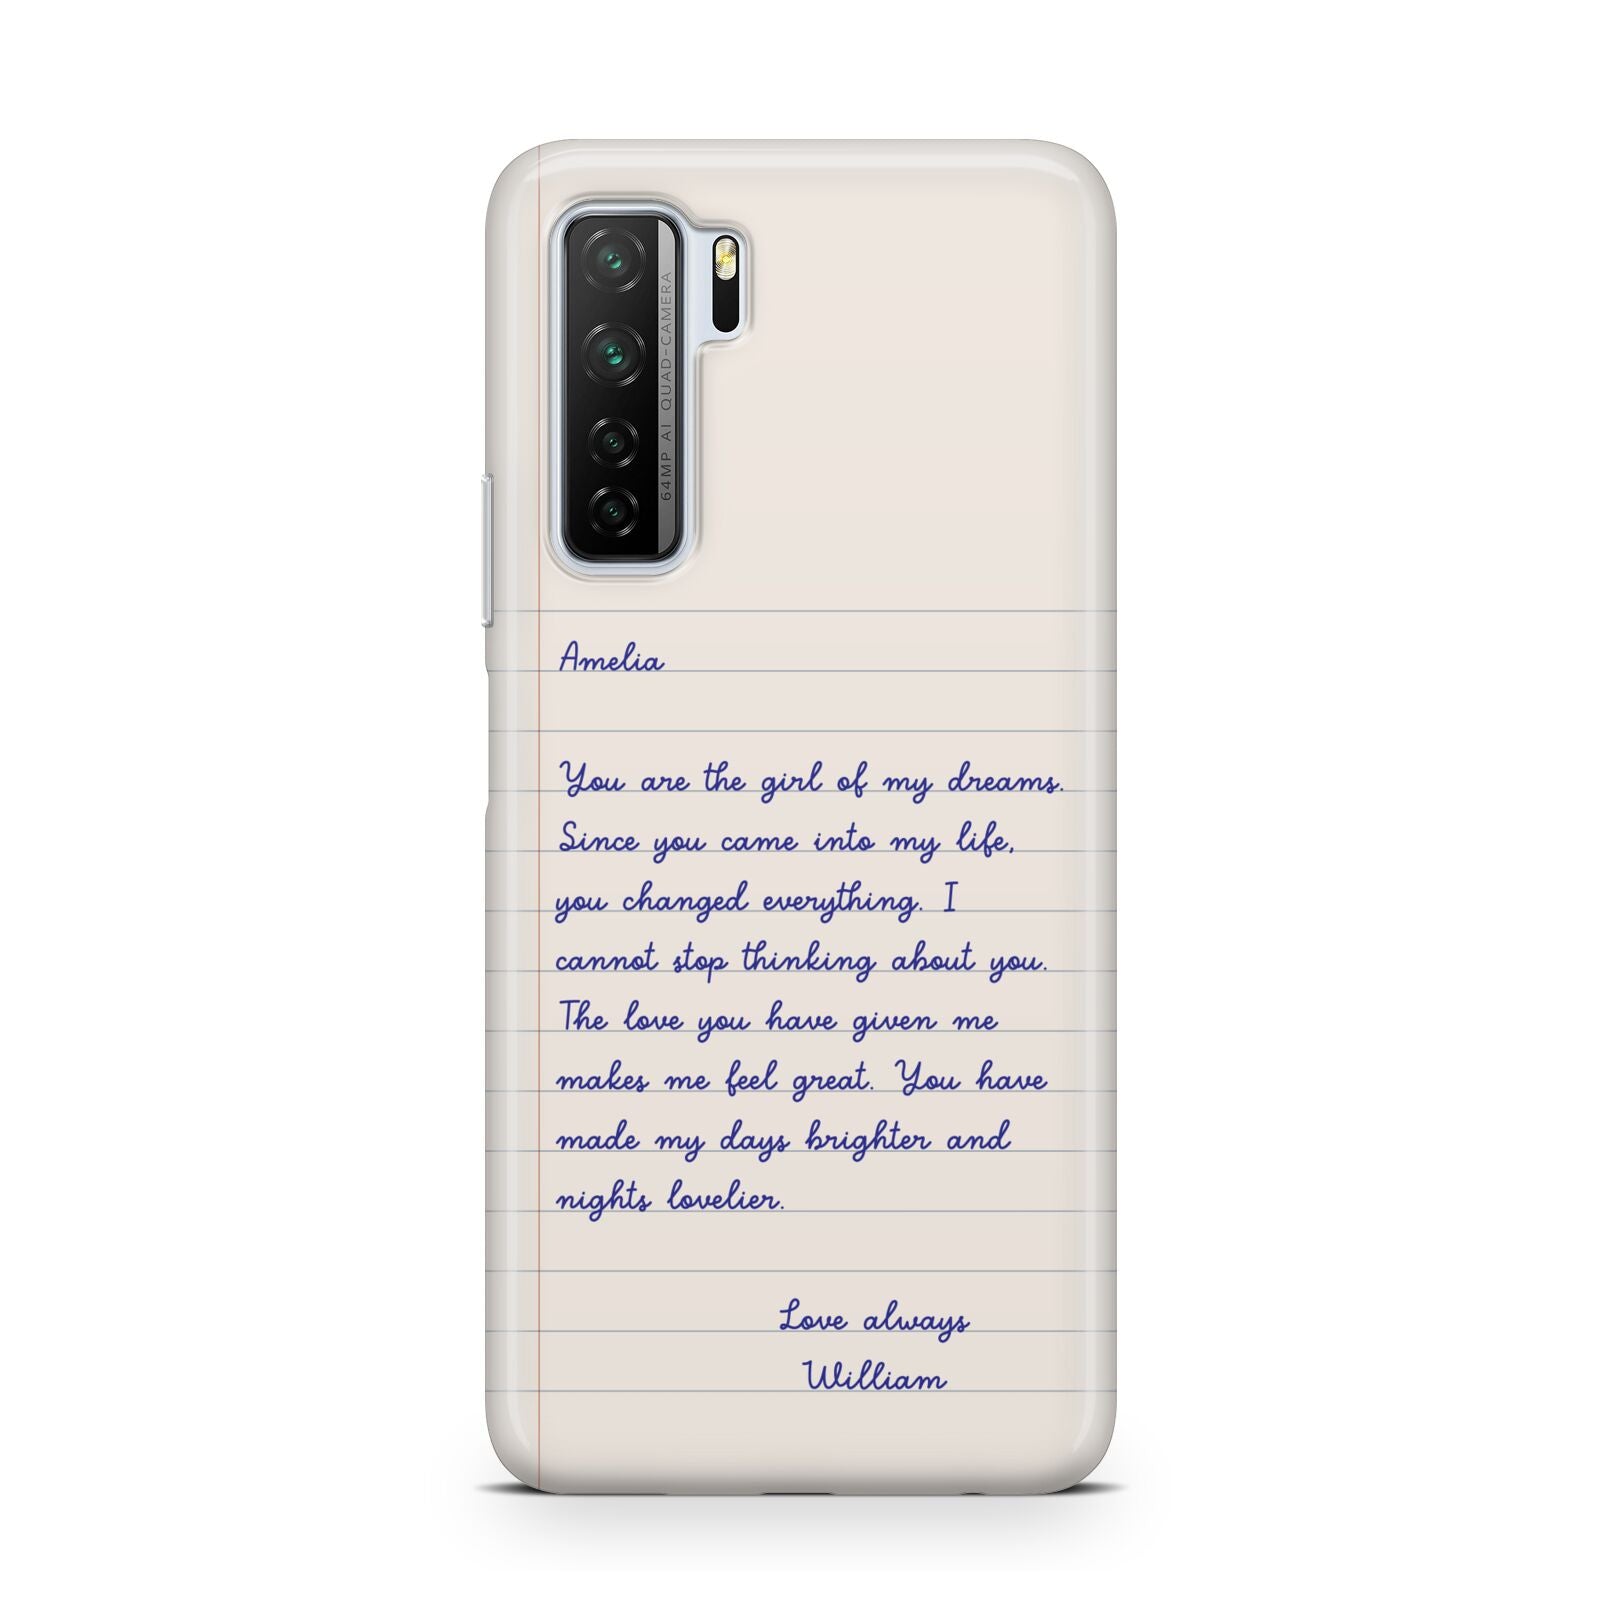 64MP AI QUAD-CAMERA
Amelia
You are the girl of my dreams.
Since you came into my life,
you changed everything. I
cannot stop thinking about you.
The love you have given me
makes me feel great. You have
made my days brighter and
nights lovelier.
Love always
William